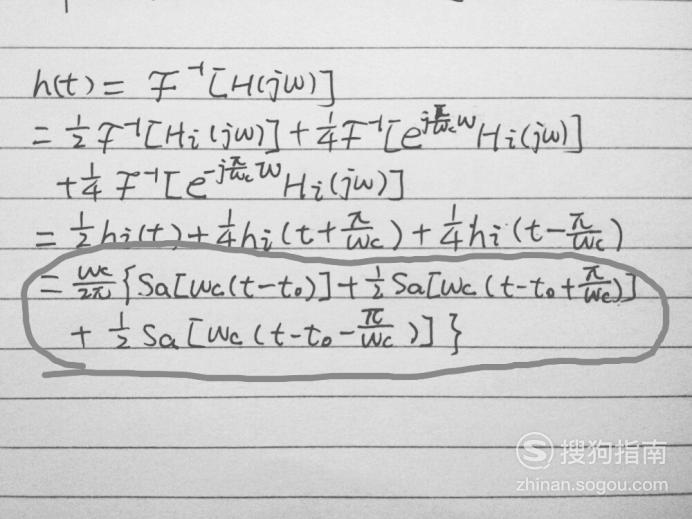 h(t) = F⁻¹[H(jω)]
= 1/2 F⁻¹[Hi(jω)] + 1/4 F⁻¹[e^{j(π/ωc)ω} Hi(jω)]
+ 1/4 F⁻¹[e^{-j(π/ωc)ω} Hi(jω)]
= 1/2 hi(t) + 1/4 hi(t + π/ωc) + 1/4 hi(t - π/ωc)
= ωc/2π {Sa[ωc(t-t₀)] + 1/2 Sa[ωc(t-t₀+π/ωc)]
+ 1/2 Sa[ωc(t-t₀-π/ωc)]}
搜狗指南
zhinan.sogou.com